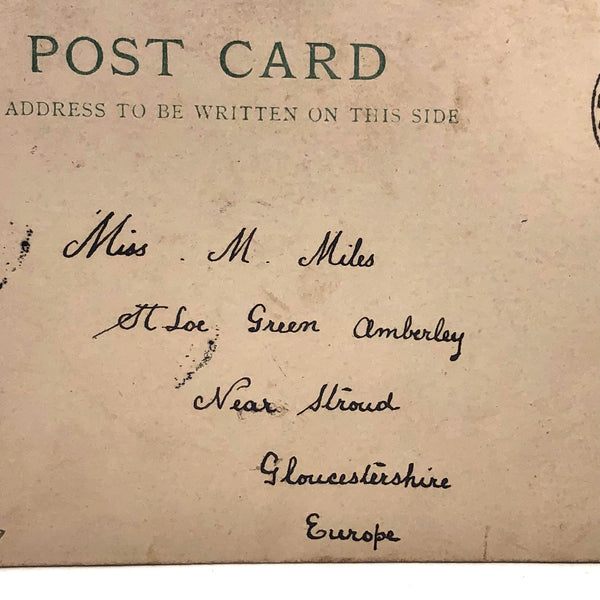 POST CARD
ADDRESS TO BE WRITTEN ON THIS SIDE
Miss . M. Miles
St Loe Green Amberley
Near Stroud
Gloucestershire
Europe